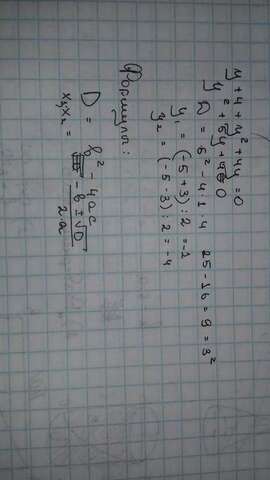 y + 4 + y² + 4y = 0
y² + 5y + 4 = 0
D = 6² - 4·1·4 25 - 16 = 9 = 3²
y₁ = (-5 + 3) : 2 = -1
y₂ = (-5 - 3) : 2 = -4
Формулы:
D = b² - 4ac
x₁,x₂ = -b ± √D / 2·a